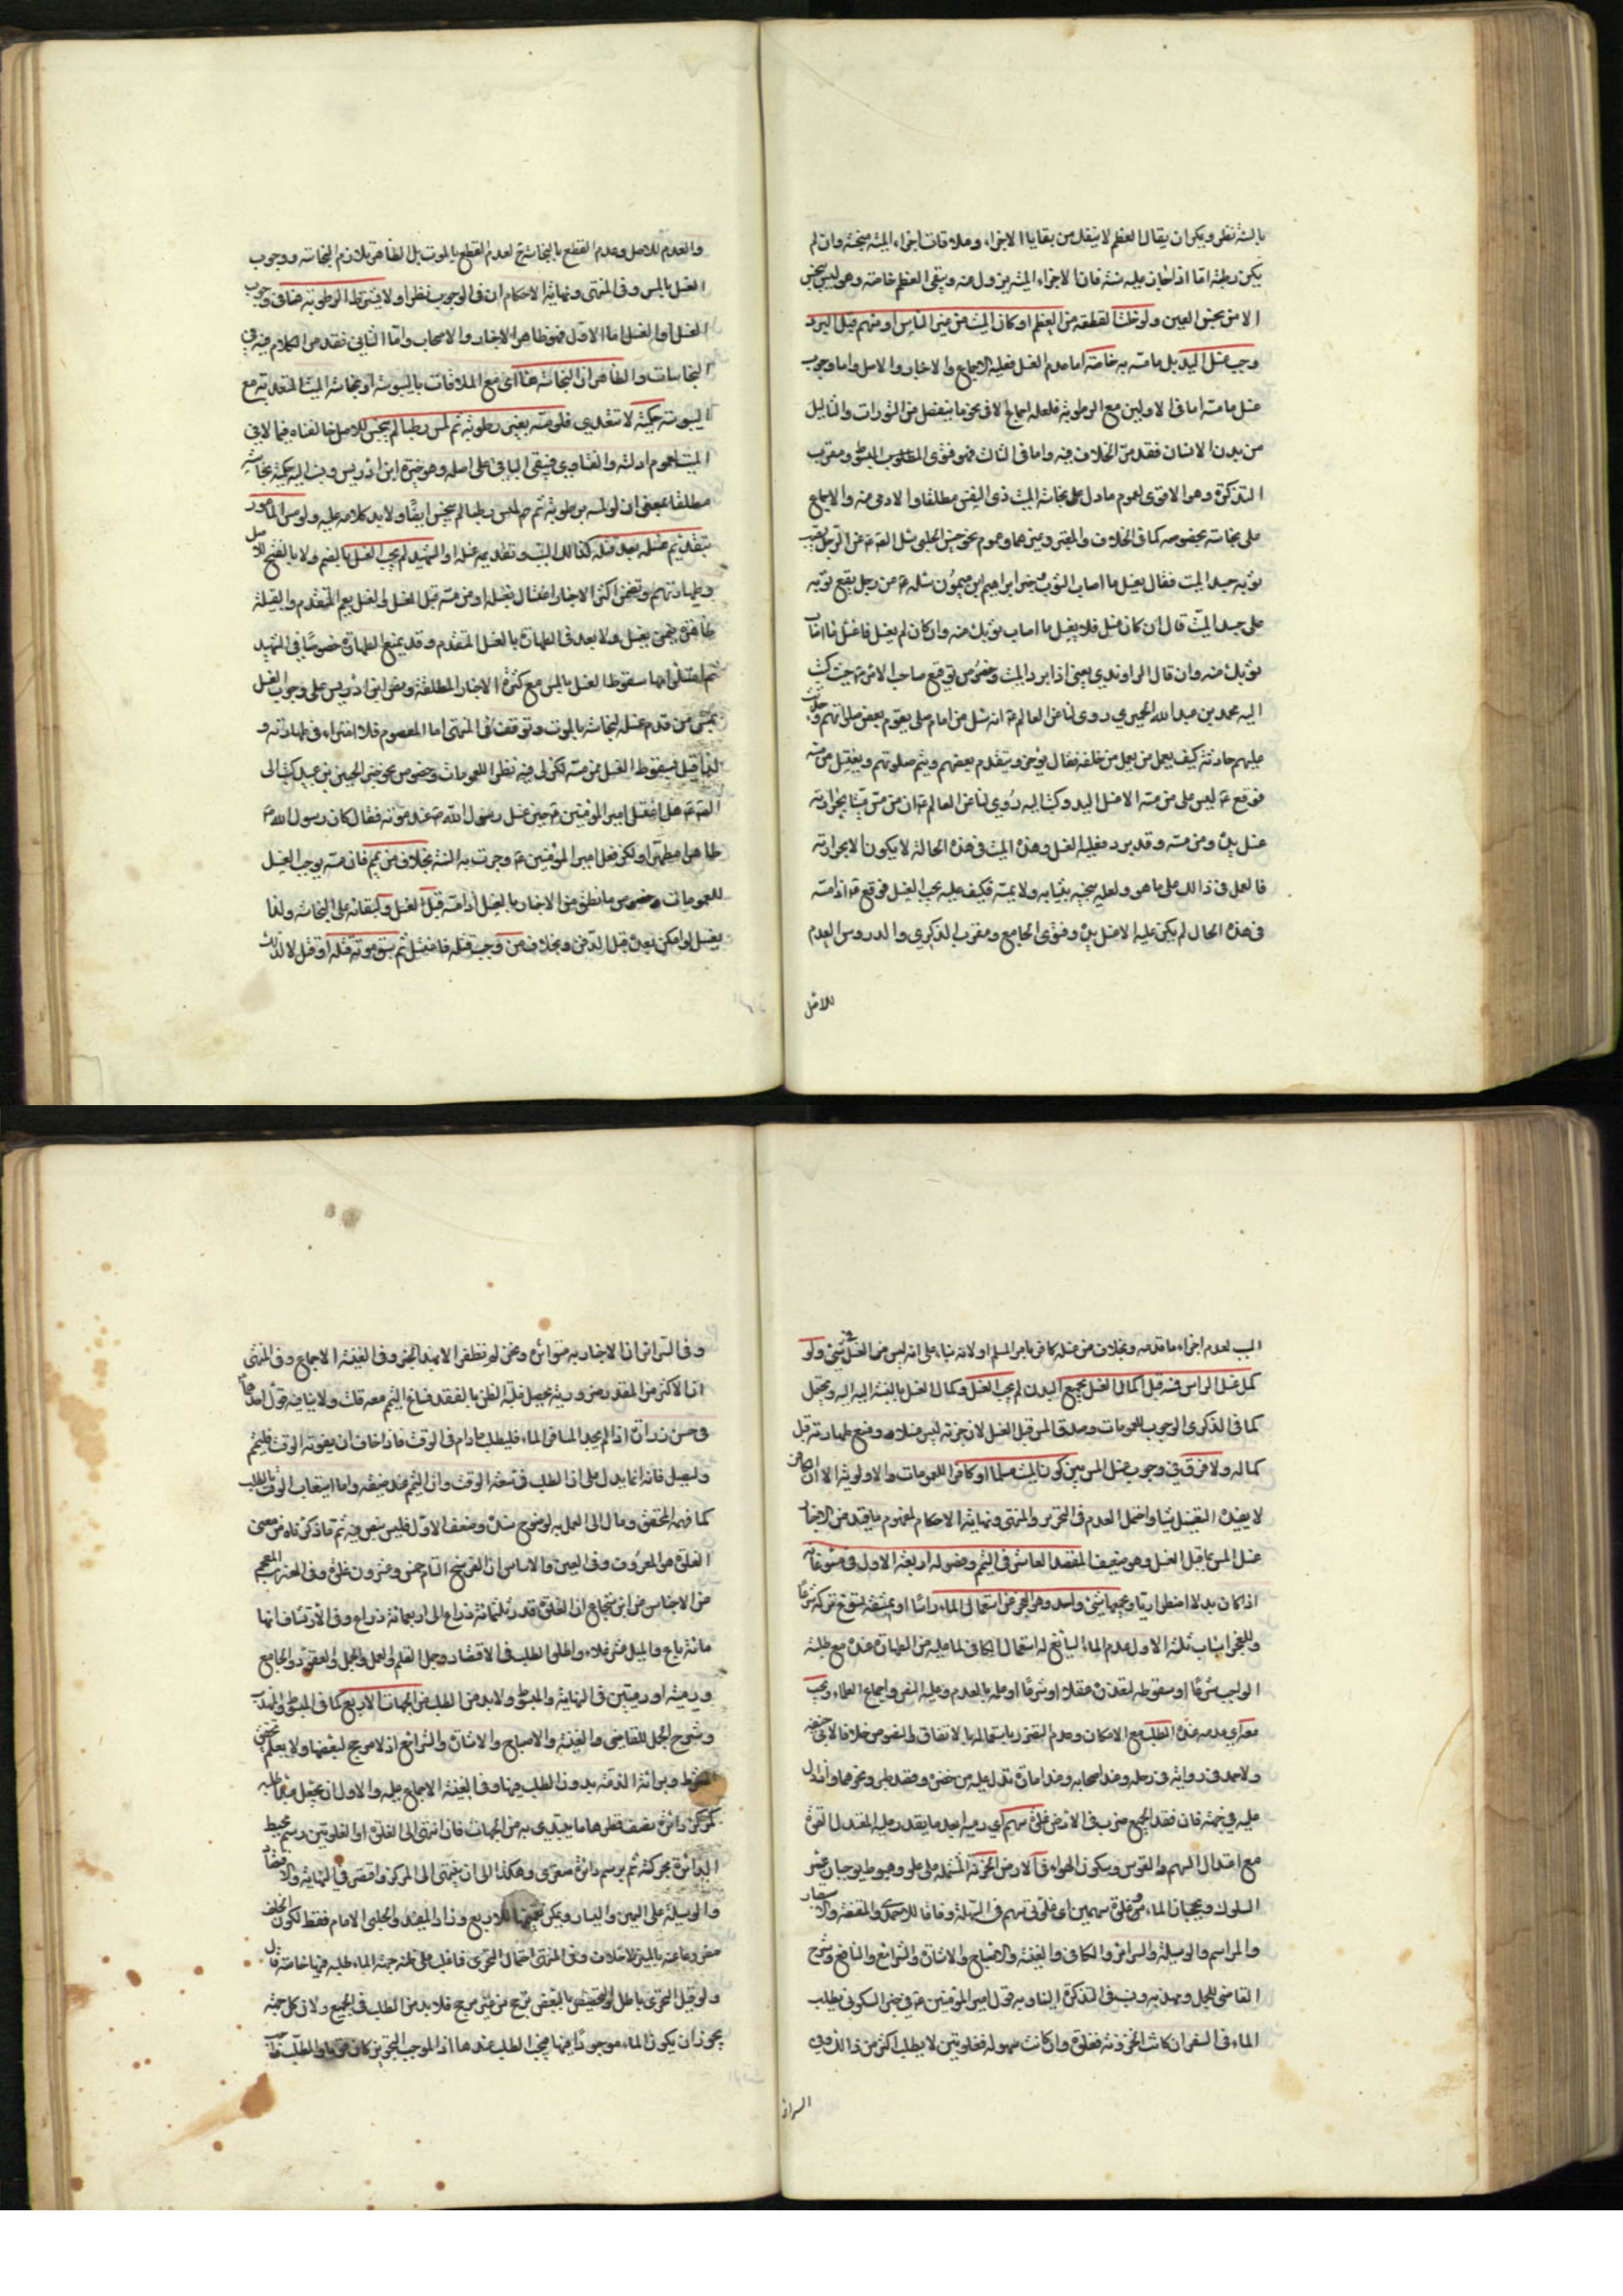 بالميتة نظر ويمكن ان يقال العظم لا ينفك من بقايا الاجزاء وملاقات اجزاء الميتة منجسة وان لم
يكن رطبة اما اذا خان عليه سنة فان الاجزاء الميتة يزول عنه ويبقى العظم خاصة وهو ليس بنجس
الا من نجس العين ولو خلت القطعة من العظم او كان الميت من غير الناس او منهم قبل البرد
وجب غسل اليد بل ما مسه به خاصة اما عدم الغسل فعليه الاجماع والاخبار والاصل واما وجوب
غسل ما مسه اما في الاولين مع الرطوبة فلعله اجماع الا في نحو ما ينفصل من البثورات والثاليل
من بدن الانسان فقد مر الخلاف فيه واما في الثالث فهو فتوى المبسوط ومقرب
التذكرة وهو الاقوى لعموم ما دل على نجاسة الميت ذي النفس مطلقا والادمي منه والاجماع
على نجاسته بخصوصه كما في الخلاف والمعتبر وغيرهما وعموم نحو حسن الحلبي سئل الصادق عن الرجل يصيب
ثوبه جسد الميت فقال يغسل ما اصاب الثوب وخبر ابراهيم ابن ميمون سئله عن رجل يقع ثوبه
على جسد الميت قال ان كان غسل فلا يغسل ما اصاب ثوبك منه وان كان لم يغسل فاغسل ما اصاب
ثوبك منه وان قال الراوندي يعني اذا برد الميت وخصوص توقيع صاحب الامر حيث كتب
اليه محمد بن عبد الله الحميري روى لنا عن العالم انه سئل عن امام صلى بقوم بعض صلوتهم وحدثت
عليهم حادثة كيف يعمل من خلفه فقال يؤخر ويتقدم بعضهم ويتم صلوتهم ويغتسل من مسه
فوقع ليس على من مسه الا غسل اليد وكتب اليه روي لنا عن العالم ان من مس ميتا بحرارته
غسل يده ومن مسه وقد برد فعليه الغسل وهذا الميت في هذه الحالة لا يكون الا بحرارته
فالعمل في ذالك على ما هو ولعله ينحيه بثيابه ولا يمسه فكيف عليه يجب الغسل فوقع اذا مسه
في هذه الحال لم يكن عليه الا غسل يده وفتوى الجامع ومقرب الذكرى والدروس العدم
للاصل
والعدم للاصل وعدم القطع بالنجاسة لعدم القطع بالموت بل الظاهر تلازم النجاسة ووجوب
الغسل بالمس وفي المنتهى ونهاية الاحكام ان في الوجوب نظرا ولا يشترط الرطوبة هنا في وجوب
الغسل او الغسل اما الاول فهو ظاهر الاخبار والاصحاب واما الثاني فقد مر الكلام فيه في
النجاسات والظاهر ان النجاسة هنا اي مع الملاقات باليبوسة او نجاسة الميت المتعدية مع
اليبوسة حكمية لا تتعدى فلو مسه بغير رطوبة ثم لمس رطبا لم ينجس للاصل خالفناه فيما لاقى
الميت لعموم ادلته والفتاوي فيبقى الباقي على اصله وهو خيرة ابن ادريس ونسب اليه حكمية نجاسته
مطلقا بمعنى ان لو لمسه برطوبة ثم لمس رطبا لم ينجس ايضا ولا يد كلامه عليه ولو مس المأمور
بتقديم غسله بعد قتله كذالك الميت وتقديمه غسله او الشهيد لم يجب الغسل بالضم ولا بالفتح للاصل
وطهارتهم وتضمن اكثر الاخبار اغتسال يغسله او من مسه قبل الغسل والغسل يعم المتقدم والقبلية
ظاهرة فيمن يغسل ولا بعد في الطهارة بالغسل المتقدم وقد يمنع الطهارة خصوصا في الشهيد
ثم سقوط الغسل بالمس مع كثرة الاخبار المطلقة ونص ابن ادريس على وجوب الغسل
بمس من قدم غسله لنجاسته بالموت وتوقف في المنتهى اما المعصوم فلا امتراء في طهارته و
لذا قيل بسقوط الغسل بمن مسه لكن لي فيه نظر للعمومات وخصوص نحو خبر الحسين بن عبيد كتب الى
الصادق هل اغتسل امير المؤمنين حين غسل رسول الله عند موته فقال كان رسول الله
طاهرا مطهرا ولكن فعل امير المؤمنين وجرت به السنة بخلاف من يمم فان مسه يوجب الغسل
للعمومات وخصوص ما نطق من الاخبار بالغسل اذا مسه قبل الغسل وكبقائه على النجاسة ولذا
يغسل لو امكن بعده قبل الدفن وبخلاف من وجب قتله فاغتسل ثم سبق موته قتله او قتل لا لذلك
السبب لعدم اجزاء ما قدمه وبخلاف من غسله كافر بامر المسلم او لا بناء على انه ليس من الغسل في شيء ولو
كمل غسل الراس فمسه قبل اكمال الغسل بجميع البدن لم يجب الغسل وكمال الغسل بالنسبة اليه ويحتمل
كما في الذكرى الوجوب للعمومات وصدق المس قبل الغسل لان جزئه ليس غسلا ومنع طهارته قبل
كماله ولا فرق في وجوب غسل المس بين كون الميت مسلما او كافرا للعمومات والاولوية الا ان الكافر
لا يفيده الغسل شيئا واحتمل العدم في التحرير والمنتهى ونهاية الاحكام لمفهوم ما قيد من الاخبار
غسل المس بما قبل الغسل وهو ضعيف المقصد العاشر في التيمم وفصوله اربعة الاول في مسوغاته
اذا كان بدلا اضطراريا ويجمعها شيء واحد وهو العجز عن استعمال الماء راسا او بمشقة يسوغ تركه شرعا
وللعجز اسباب ثلثة الاول عدم الماء السائغ له استعمال الكافي لما عليه من الطهارة عنده مع طلبه
الواجب شرعا او سقوطه لتعذره عقلا او شرعا او علمه بالعدم وعليه النص واجماع العلماء ويجب
معه اي عدمه عنده الطلب مع الامكان وعدم التضرر باستعماله بالاتفاق والنصوص خلافا لابي حنيفة
ولاحمد في رواية في رحله وعند اصحابه وعند امارة تدل عليه من خضرة وقصد طير ونحوهما واذا دل
عليه في جهته فان فقد الجميع ضرب في الارض غلوة سهم اي رميه ابعد ما يقدر عليه المعتدل القوة
مع اعتدال السهم والقوس وسكون الهواء في الارض الحزنة المشتملة على علو وهبوط يوجبان عسر
السلوك ويحجبان الماء عن غلوة سهمين اي غلوتي سهم في السهلة وفاقا للاسمدي والمقنعة والاستبصار
والمراسم والوسيلة والسرائر والكافي والغنية والاصباح والاشارة والشرايع والنافع وشرح
القاضي للجمل ومهذبه ونسب في التذكرة الينا وبه قول امير المؤمنين في خبر السكوني يطلب
الماء في السفر ان كانت الحزونة فغلوة وان كانت سهولة فغلوتين لا يطلب اكثر من ذالك وفي
السرائر
وفي السرائر ان الاخبار به متواترة ونحن لم نظفر الا بهذا الخبر وفي الغنية الاجماع وفي المنتهى
ان الاكثر من المقدرين وربه يحصل غلبة الظن بالفقد فساغ التيمم معه قلت ولا ينافيه قول احدهما
في حسن زرارة اذا لم يجد المسافر الماء فليطلب ما دام في الوقت فاذا خاف ان يفوته الوقت فليتيمم
وليصل فانه انما يدل على ان الطلب في سعة الوقت وان التيمم عند ضيقه واما استيعاب الوقت بالطلب
كما فهمه المحقق ومال الى العمل به لوضوح سنده وضعف الاول فليس بنص فيه ثم ما ذكرناه من معنى
الغلوة هو المعروف وفي العين والاساس ان الفرسخ التام خمس وعشرون غلوة وفي المغرب المعجم
عن الاجناس عن ابن شجاع ان الغلوة قدر ثلثمائة ذراع الى اربعمائة ذراع وفي الارتشاف انها
مائة باع والميل عشر غلاء واطلق الطلب في الاقتصاد وجمل العلم والعمل والجمل والعقود والجامع
ورمية او رميتين في النهاية والمبسوط ولا بد من الطلب من الجهات الاربع كما في المبسوط والمهذب
وشرح الجمل للقاضي والغنية والاصباح والاشارة والشرايع اذ لا مرجح لبعضها ولا يعلم تحقق
الشرط وبراءة الذمة بدون الطلب فيها وفي الغنية الاجماع عليه والاولى ان يجعل مبدأ طلبه
كمركز دائرة نصف قطرها ما يبتدى به من الجهات فان انتهى الى الغلوة او الغلوتين رسم محيط
الدائرة بحركته ثم يرسم دائرة صغرى وهكذا الى ان ينتهي الى المركز واقتصر في النهاية والاقتصاد
والوسيلة على اليمين واليسار ويمكن تعميمها للاربع وزاد المفيد والحلبي الامام فقط لكون الخلف
مفروغا عنه بالمسير لا خلاف وفي المنتهى احتمال التحري فما غلب على ظنه جهة الماء طلبه فيها خاصة قال
ولو قيل التحري باطل والتخصيص بالبعض ترجح من غير مرجح فلا بد من الطلب في الجميع ولان كل جهة
يجوز ان يكون الماء موجودا فيها فيجب الطلب عندها اذ الموجب التجويز كان